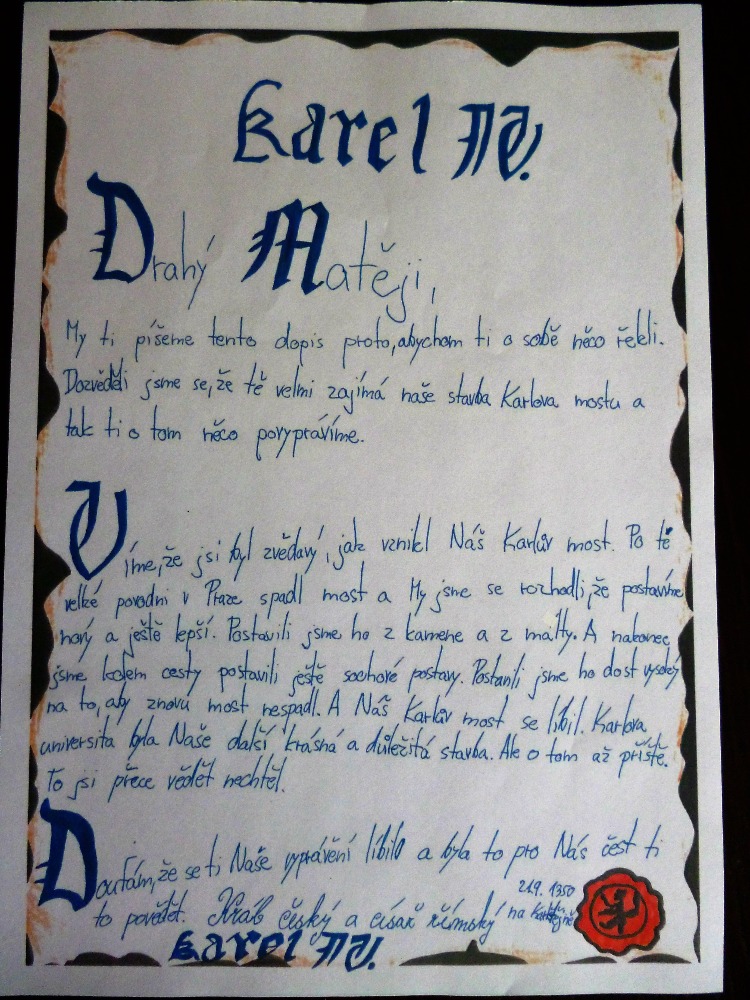 Karel IV.
Drahý Matěji,
My ti píšeme tento dopis proto, abychom ti o sobě něco řekli.
Dozvěděli jsme se, že tě velmi zajímá naše stavba Karlova mostu a
tak ti o tom něco povyprávíme.
Víme, že jsi byl zvědavý, jak vznikl Náš Karlův most. Po té
velké povodni v Praze spadl most a My jsme se rozhodli, že postavíme
nový a ještě lepší. Postavili jsme ho z kamene a z malty. A nakonec
jsme kolem cesty postavili ještě sochové postavy. Postavili jsme ho dost vysoký
na to, aby znovu most nespadl. A Náš Karlův most se líbil. Karlova
universita byla Naše další krásná a důležitá stavba. Ale o tom až příště.
To jsi přece vědět nechtěl.
Doufám, že se ti Naše vyprávění líbilo a byla to pro Nás čest ti
to povědět. Král český a císař římský
21.9. 1350
na Karlštejně
Karel IV.